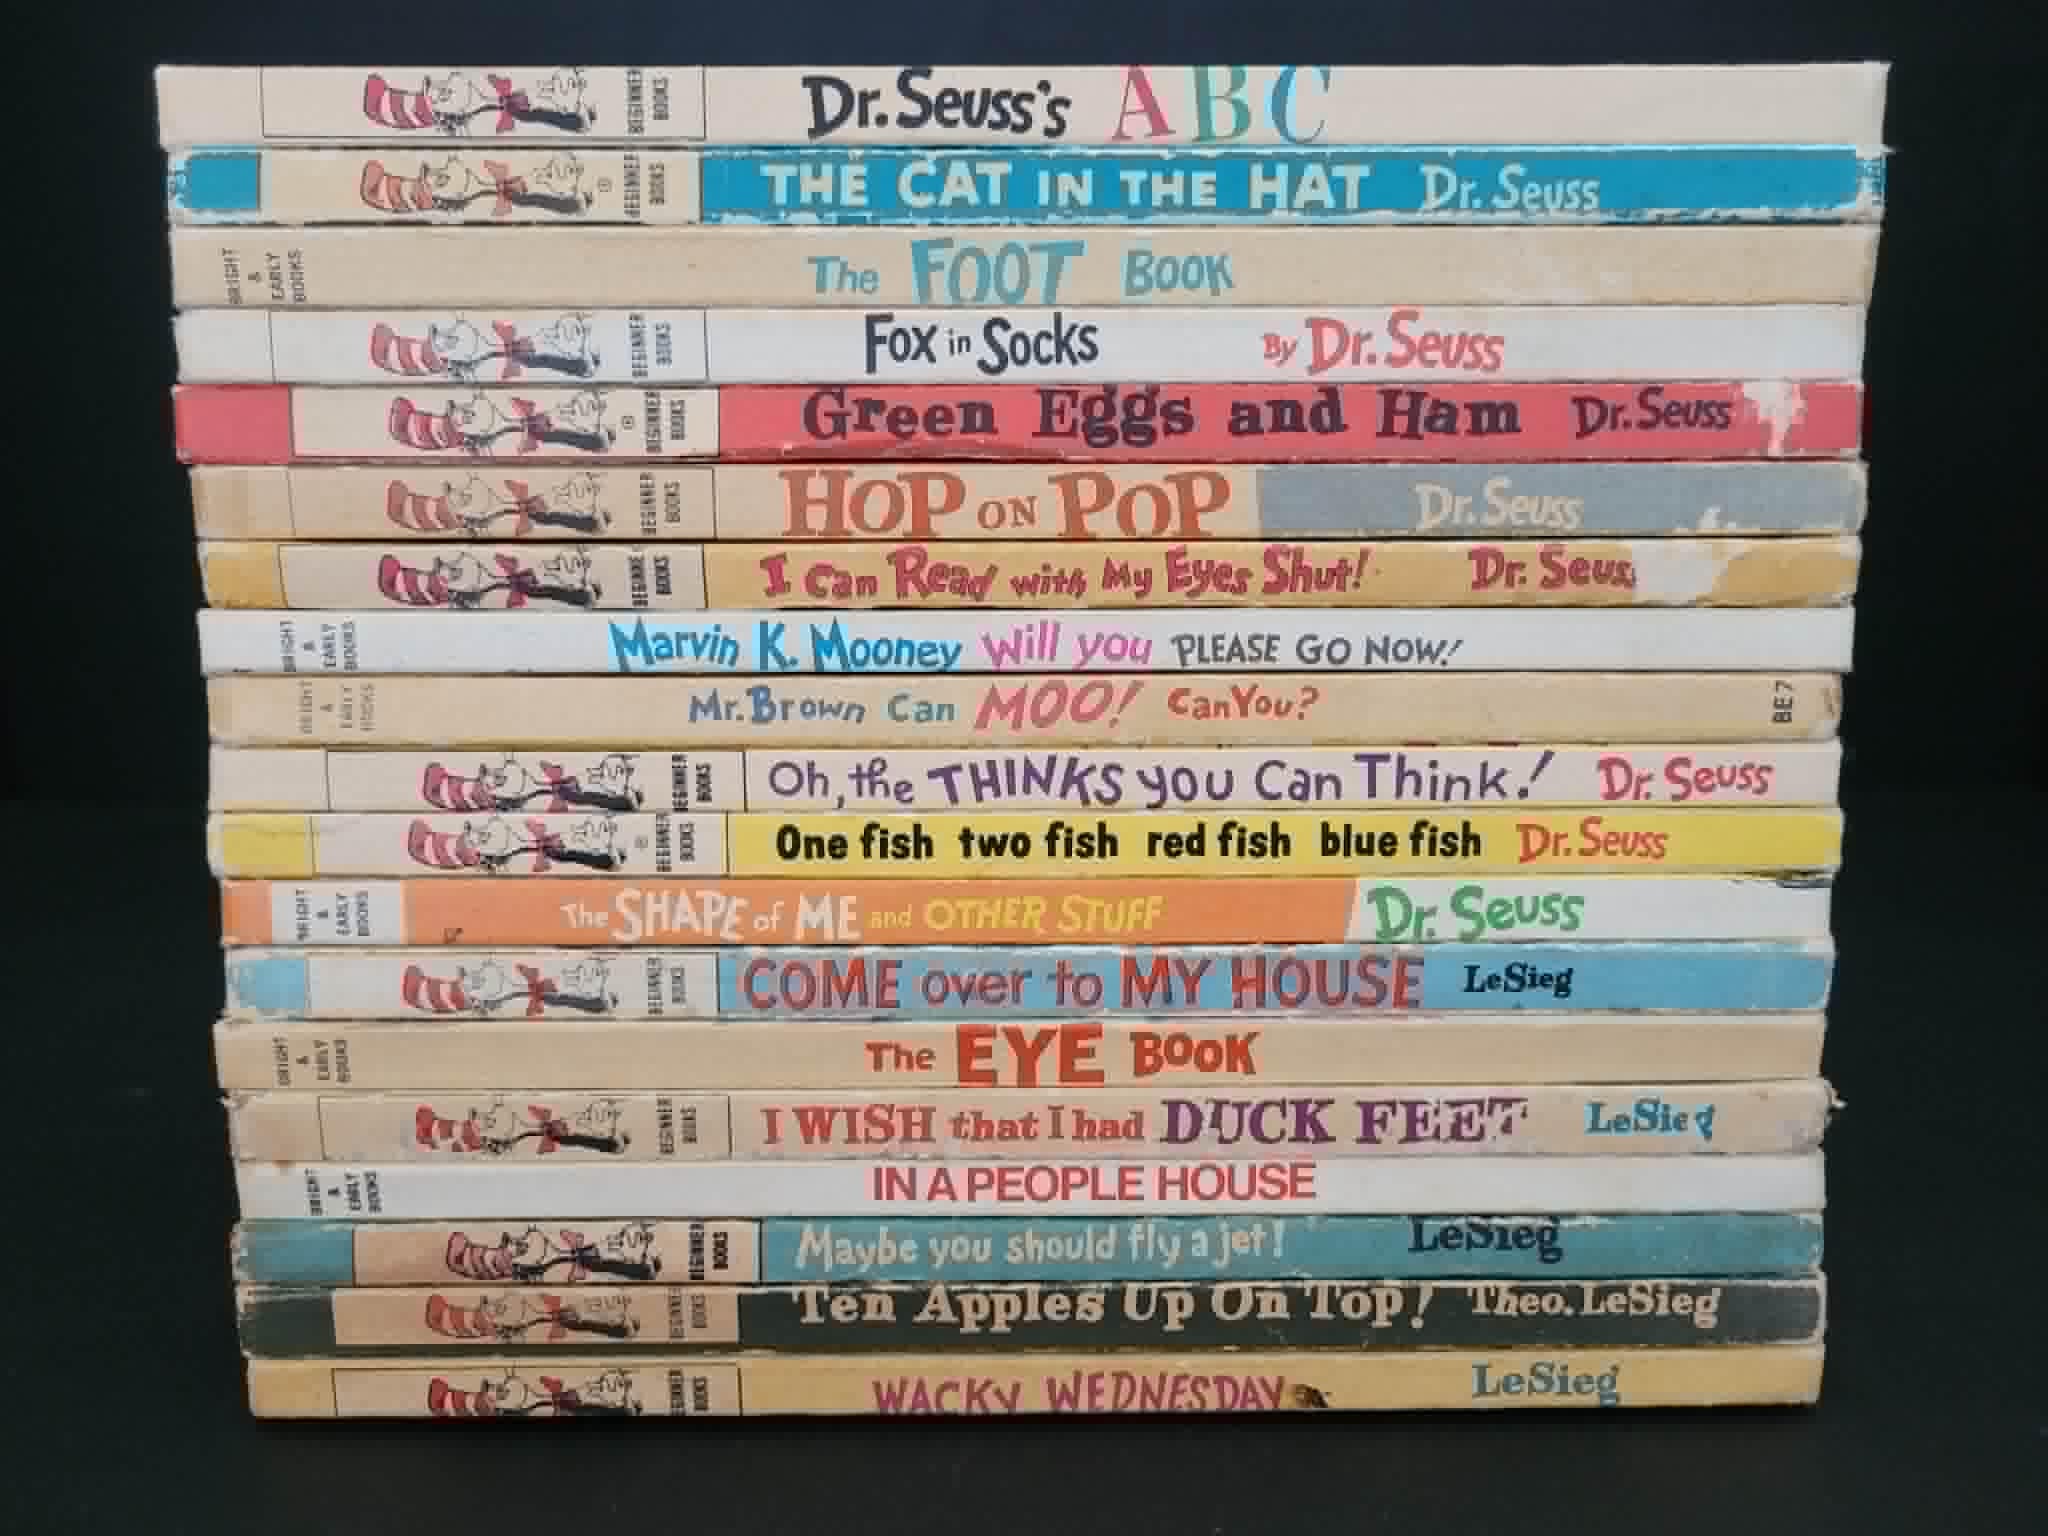 BEGINNER BOOKS Dr. Seuss's ABC
BEGINNER BOOKS THE CAT IN THE HAT Dr. Seuss
BRIGHT & EARLY BOOKS The FOOT Book
BEGINNER BOOKS Fox in Socks By Dr. Seuss
BEGINNER BOOKS Green Eggs and Ham Dr. Seuss
BEGINNER BOOKS HOP ON POP Dr. Seuss
BEGINNE BOOKS I Can Read with My Eyes Shut! Dr. Seus
BRIGHT & EARLY BOOKS Marvin K. Mooney Will you PLEASE GO NOW!
BRIGHT & EARLY BOOKS Mr. Brown Can MOO! Can You? BE7
BEGINNER BOOKS Oh, the THINKS you Can Think! Dr. Seuss
BEGINNER BOOKS One fish two fish red fish blue fish Dr. Seuss
BRIGHT & EARLY BOOKS The SHAPE of ME and OTHER STUFF Dr. Seuss
BEGINNER BOOKS COME over to MY HOUSE LeSieg
BRIGHT & EARLY BOOKS The EYE BOOK
BEGINNER BOOKS I WISH that I had DUCK FEET LeSieg
BRIGHT & EARLY BOOKS IN A PEOPLE HOUSE
BEGINNER BOOKS Maybe you should fly a jet! LeSieg
BEGINNER BOOKS Ten Apples Up On Top! Theo. LeSieg
BEGINNER BOOKS WACKY WEDNESDAY LeSieg